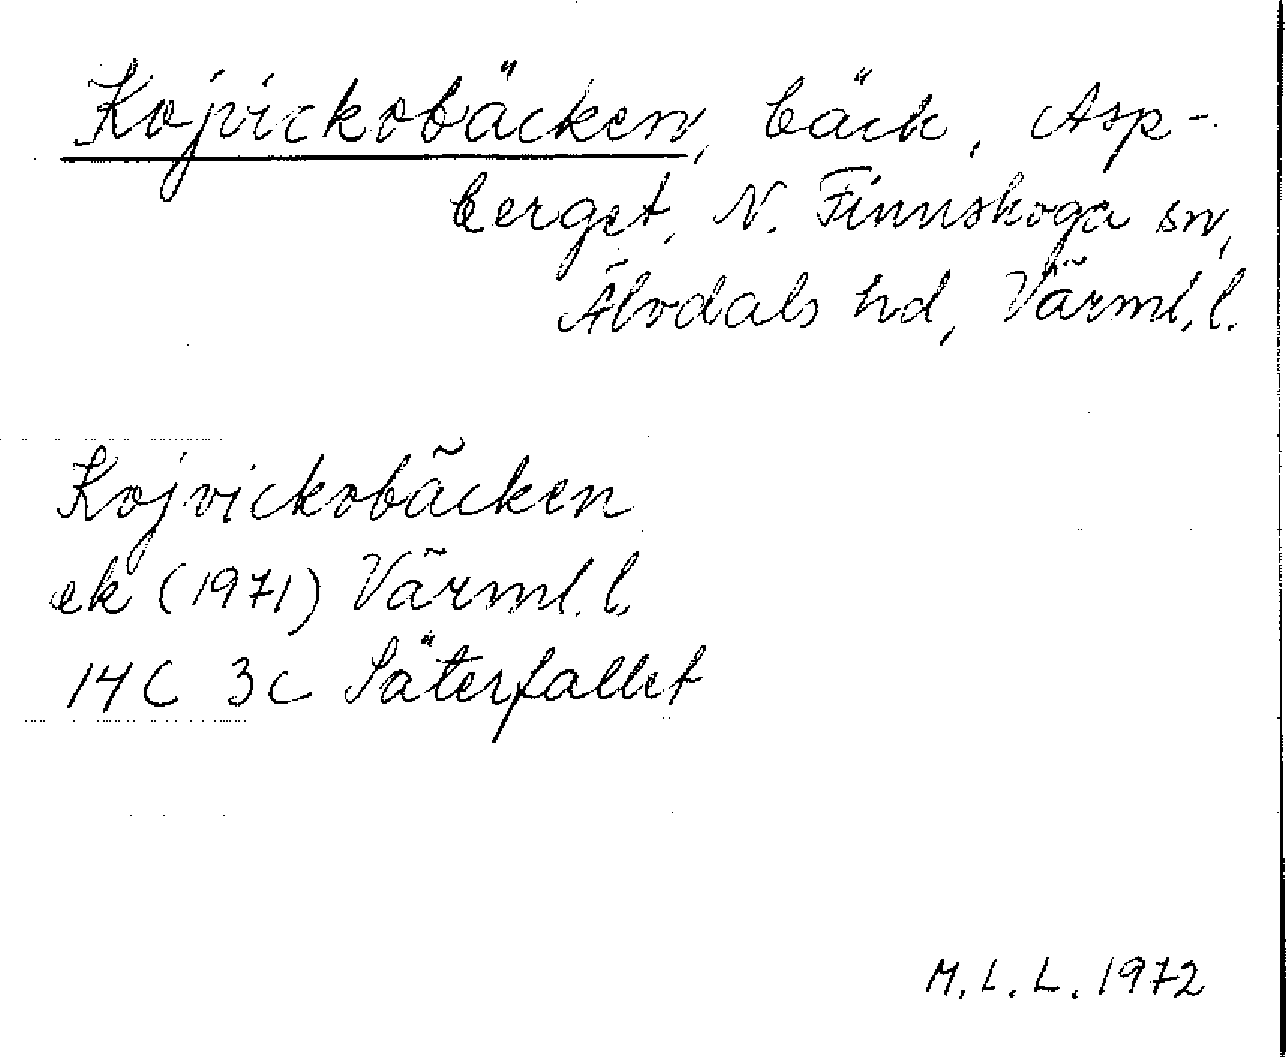 Kojvickobäcken, bäck, Asp-
berget, N. Finnskoga sn,
Älvdals hd, Värml. l.
Kojvickobäcken
ek (1971) Värml. l.
14C 3c Säterfallet
M. L. L. 1972